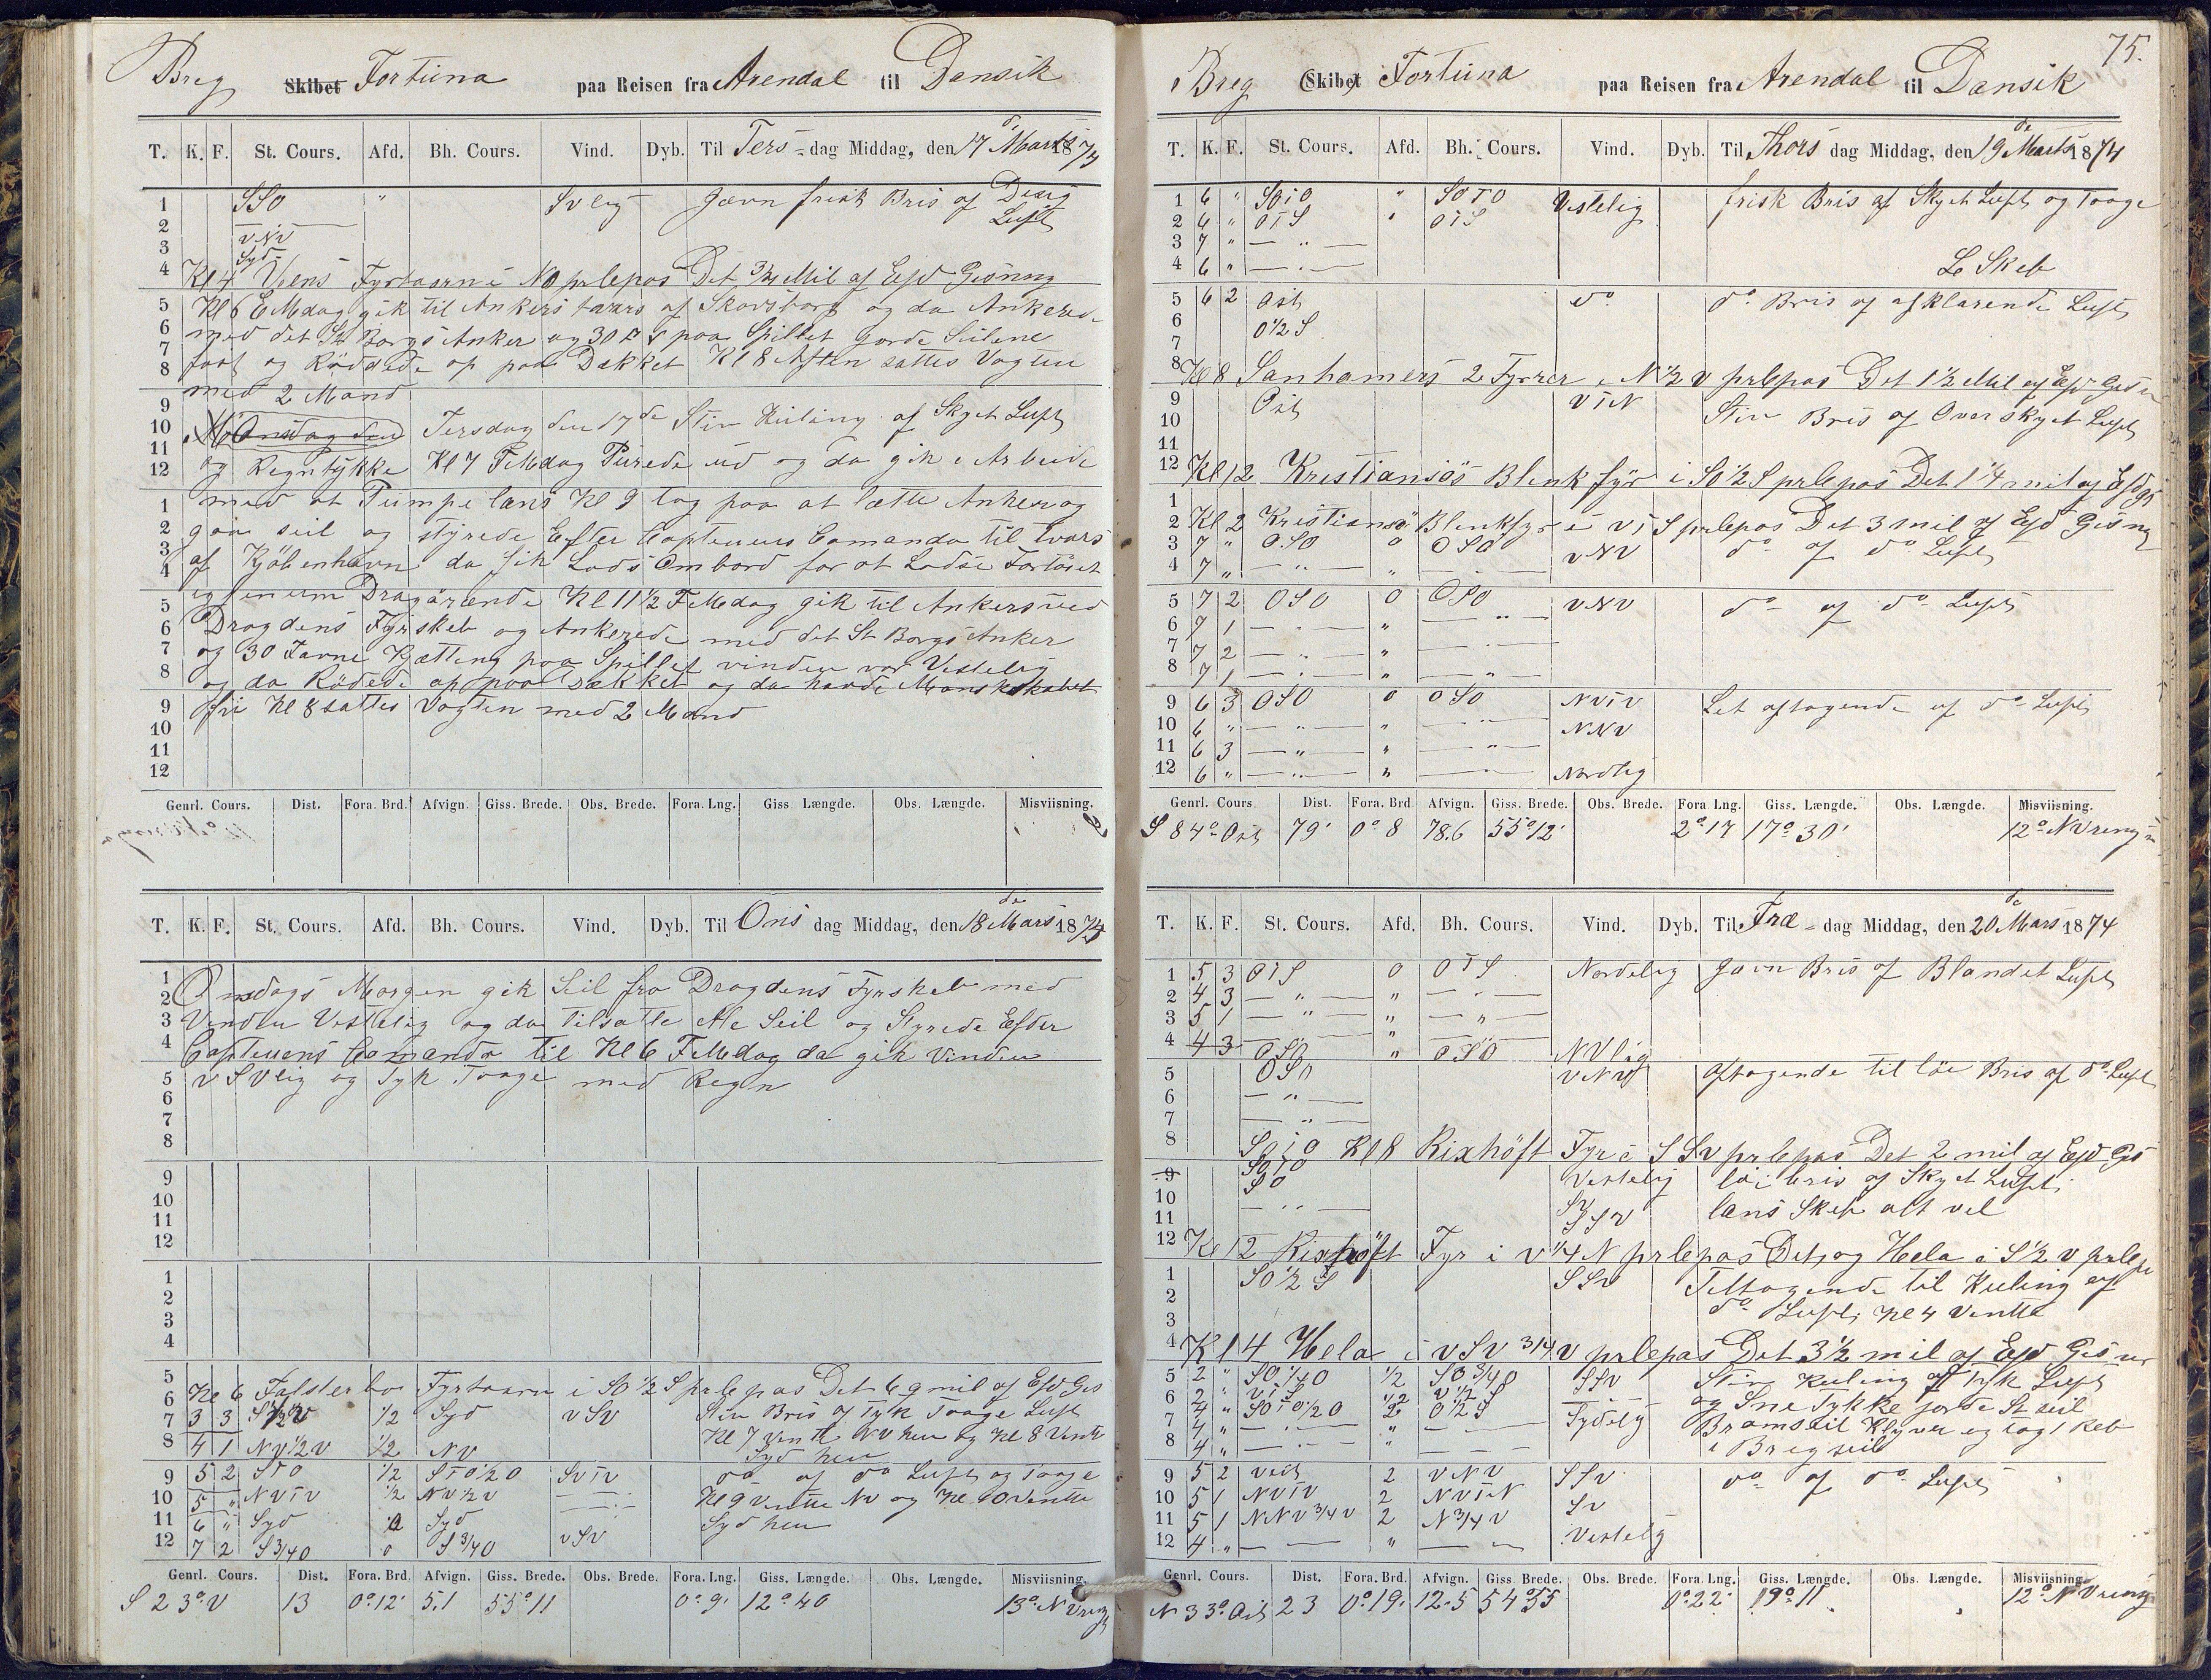 Breg Skibet Fortuna paa Reisen fra Arendal til Dansik
T. K. F. St. Cours. Afd. Bh. Cours. Vind. Dyb. Til Ters-dag Middag, den 17 de Marts 1874
1 SSO " Svlig Jævn frisk Bris af Disig
2 Luft
3 vNv
4 Syd
Kl 4 Veens Fyrtaarn i NO prlepas Det 3/4 Mil af Efd Gisning
Kl 6 EMdag gik til Ankers tværs af Skovsborg og da Ankerede
med det St Borgs Anker og 30 paa Spillet gorde Seilene
fast og Röddede op paa Dækket Kl 8 Aften sattes Vagten
med 2 Mand
Onsdag den Tersdag den 17 de Stiv Kuling af Skyet Luft
og Regntykke Kl 7 FMdag Purede ud og da gik i Arbeide
med at Pumpe læns Kl 9 tog paa at lætte Anker og
gaa seil og styrede Efter Captenens Comando til tvars
af Kjöbenhavn da fik Lods Ombord for at Lodse Fartöiet
igjenem Dragörænde Kl 11 1/2 FMdag gik til Ankers ved
Dragdens Fyrskeb og Ankerede med det St Borgs Anker
og 30 Favne Kjætting paa Spillet vinden var Vestelig
og da Rödede op paa Dækket og da havde Manskskabet
fri Kl 8 sattes Vagten med 2 Mand
Genrl. Cours. Dist. Fora. Brd. Afvign. Giss. Brede. Obs. Brede. Fora. Lng. Giss Længde. Obs. Længde. Misviisning.
T. K. F. St. Cours. Afd. Bh. Cours. Vind. Dyb. Til Ons dag Middag, den 18 de Mars 1874
Onsdags Morgen gik Seil fra Dragdens Fyrskeb med
Vinden Vestelig og da tilsatte Ale Seil og Styrede Efder
Captenens Comando til Kl 6 FMdag da gik Vinden
v Svlig og Tyk Taage med Regn
Kl 6 Falsterbo Fyrtaarn i SO 1/2 S prlepas Det 6 9 mil af Efd Gis
7 3 3 S 1/2 v 1/2 Syd v Sv Stiv Bris af Tyk Taage Luft
8 4 1 Nv 1/2 v 1/2 Nv Kl 7 Vendte NV hen og Kl 8 Vendte
Syd hen
9 5 2 STO 1/2 STO 1/2 O SvTv do af do Luft og Taage
10 5 " NvTv 1/2 Nv 1/2 v Kl 9 Vendte Nv og Kl 10 Vendte
11 6 " Syd 0 Syd Syd hen
12 7 2 S 3/4 O 0 S 3/4 O v Sv
Genrl. Cours. Dist. Fora. Brd. Afvign. Giss. Brede. Obs. Brede. Fora. Lng. Giss. Længde. Obs. Længde. Misviisning.
S 23° V 13 0° 12' 5.1 55° 11 0° 9' 12° 40 13° N Vreng
75.
Breg Skibet Fortuna paa Reisen fra Arendal til Dansik
T. K. F. St. Cours. Afd. Bh. Cours. Vind. Dyb. Til Thors dag Middag, den 19 de Marts 1874
1 6 " SOiO " SOTO Vestelig frisk Bris af Skyet Luft og Taage
2 6 " OTS " OTS
3 7 " — " —
4 6 " — " — L Skeb
5 6 2 Ost do do Bris af afklarende Luft
6 O 1/2 S
7
8 Kl 8 Sanhamers 2 Fyrrer i N 1/2 v prlepas Det 1 1/2 Mil af Efd Gis
9 Ost vTN Stiv Bris af Overskyet Luft
10
11
12 Kl 12 Kristiansös Blink fyr i SO 1/2 S prlepas Det 1 1/4 mil af Efd gi
Kl 2 Kristiansö Blinkfyr i vTS prlepas Det 3 mil af Efd Gisng
3 7 " OSO 0 OSO vNv do af do Luft
4 7 " — " — "
5 7 2 OSO 0 OSO vNv do af do Luft
6 7 1 — " — " — " —
7 7 2 — " — " — " —
8 7 1 — " — " — " —
9 6 3 OSO 0 OSO NvTv Let aftagende af do Luft
10 6 " — " — " — " — NNv
11 6 3 — " — " — " —
12 6 " — " — " — " — Nordlig
Genrl. Cours. Dist. Fora. Brd Afvign. Giss. Brede. Obs. Brede. Fora Lng. Giss. Længde. Obs. Længde. Misviisning.
S 84° Ost 79' 0° 8 78.6 55° 12' 2° 17 17° 30' 12° N Vreng
T. K. F. St. Cours. Afd. Bh. Cours. Vind. Dyb. Til Fræ-dag Middag, den 20 de Mars 1874
1 5 3 OTS 0 OTS Nordelig Jævn Bris af Blandet Luft
2 4 3 — " — " — " —
3 5 1 — " — " — " —
4 4 3 OSO " OSO NVlig
5 OSO vNv Aftagende til löi Bris af do Luft
6 — " —
7 — " —
8 SOiO Kl 8 Rixhöft Fyr i SSv prlepas Det 2 mil af Efd Gis
9 SOTO Vestelig löi bris af Skyet Luft
10 SO Sv læns Skeb alt vel
11 — " — SSv
12 Kl 12 Rixhöft Fyr i v 1/4 N prlepas Det, og Hela i S 1/2 v prlep
1 SO 1/2 S SSv Teltagende til Kuling af
2 do Luft, Kl 4 Vendte
3
4 Kl 4 Hela i v Sv 3/4 v prlepas Det 3 1/2 mil af Efd Gis
5 2 " SO 1/4 O 1/2 SO 3/4 O SSv Stiv Kuling af Tyk Luft
6 2 " vTS 1/2 v 1/2 S og Sne Tykke jorde St seil
7 4 " SOTO 1/2 O 2 O 1/2 S Sydelig Bramseil Klyver og tog 1 Reb
8 4 " — " — " — i Bregseil
9 5 2 Vest 2 vNv SSv do af do Luft
10 5 1 NvTv 2 NvTN Sv
11 5 1 NNv 3/4 v 2 N 3/4 v Vestelig
12 4 " — — " — —
Genrl. Cours. Dist. Fora. Brd. Afvign. Giss. Brede. Obs. Brede. Fora. Lng. Giss. Længde. Obs. Længde. Misviisning.
N 33° Ost 23 0° 19' 12.5 54° 55 0° 22' 19° 11 12° N Vreng